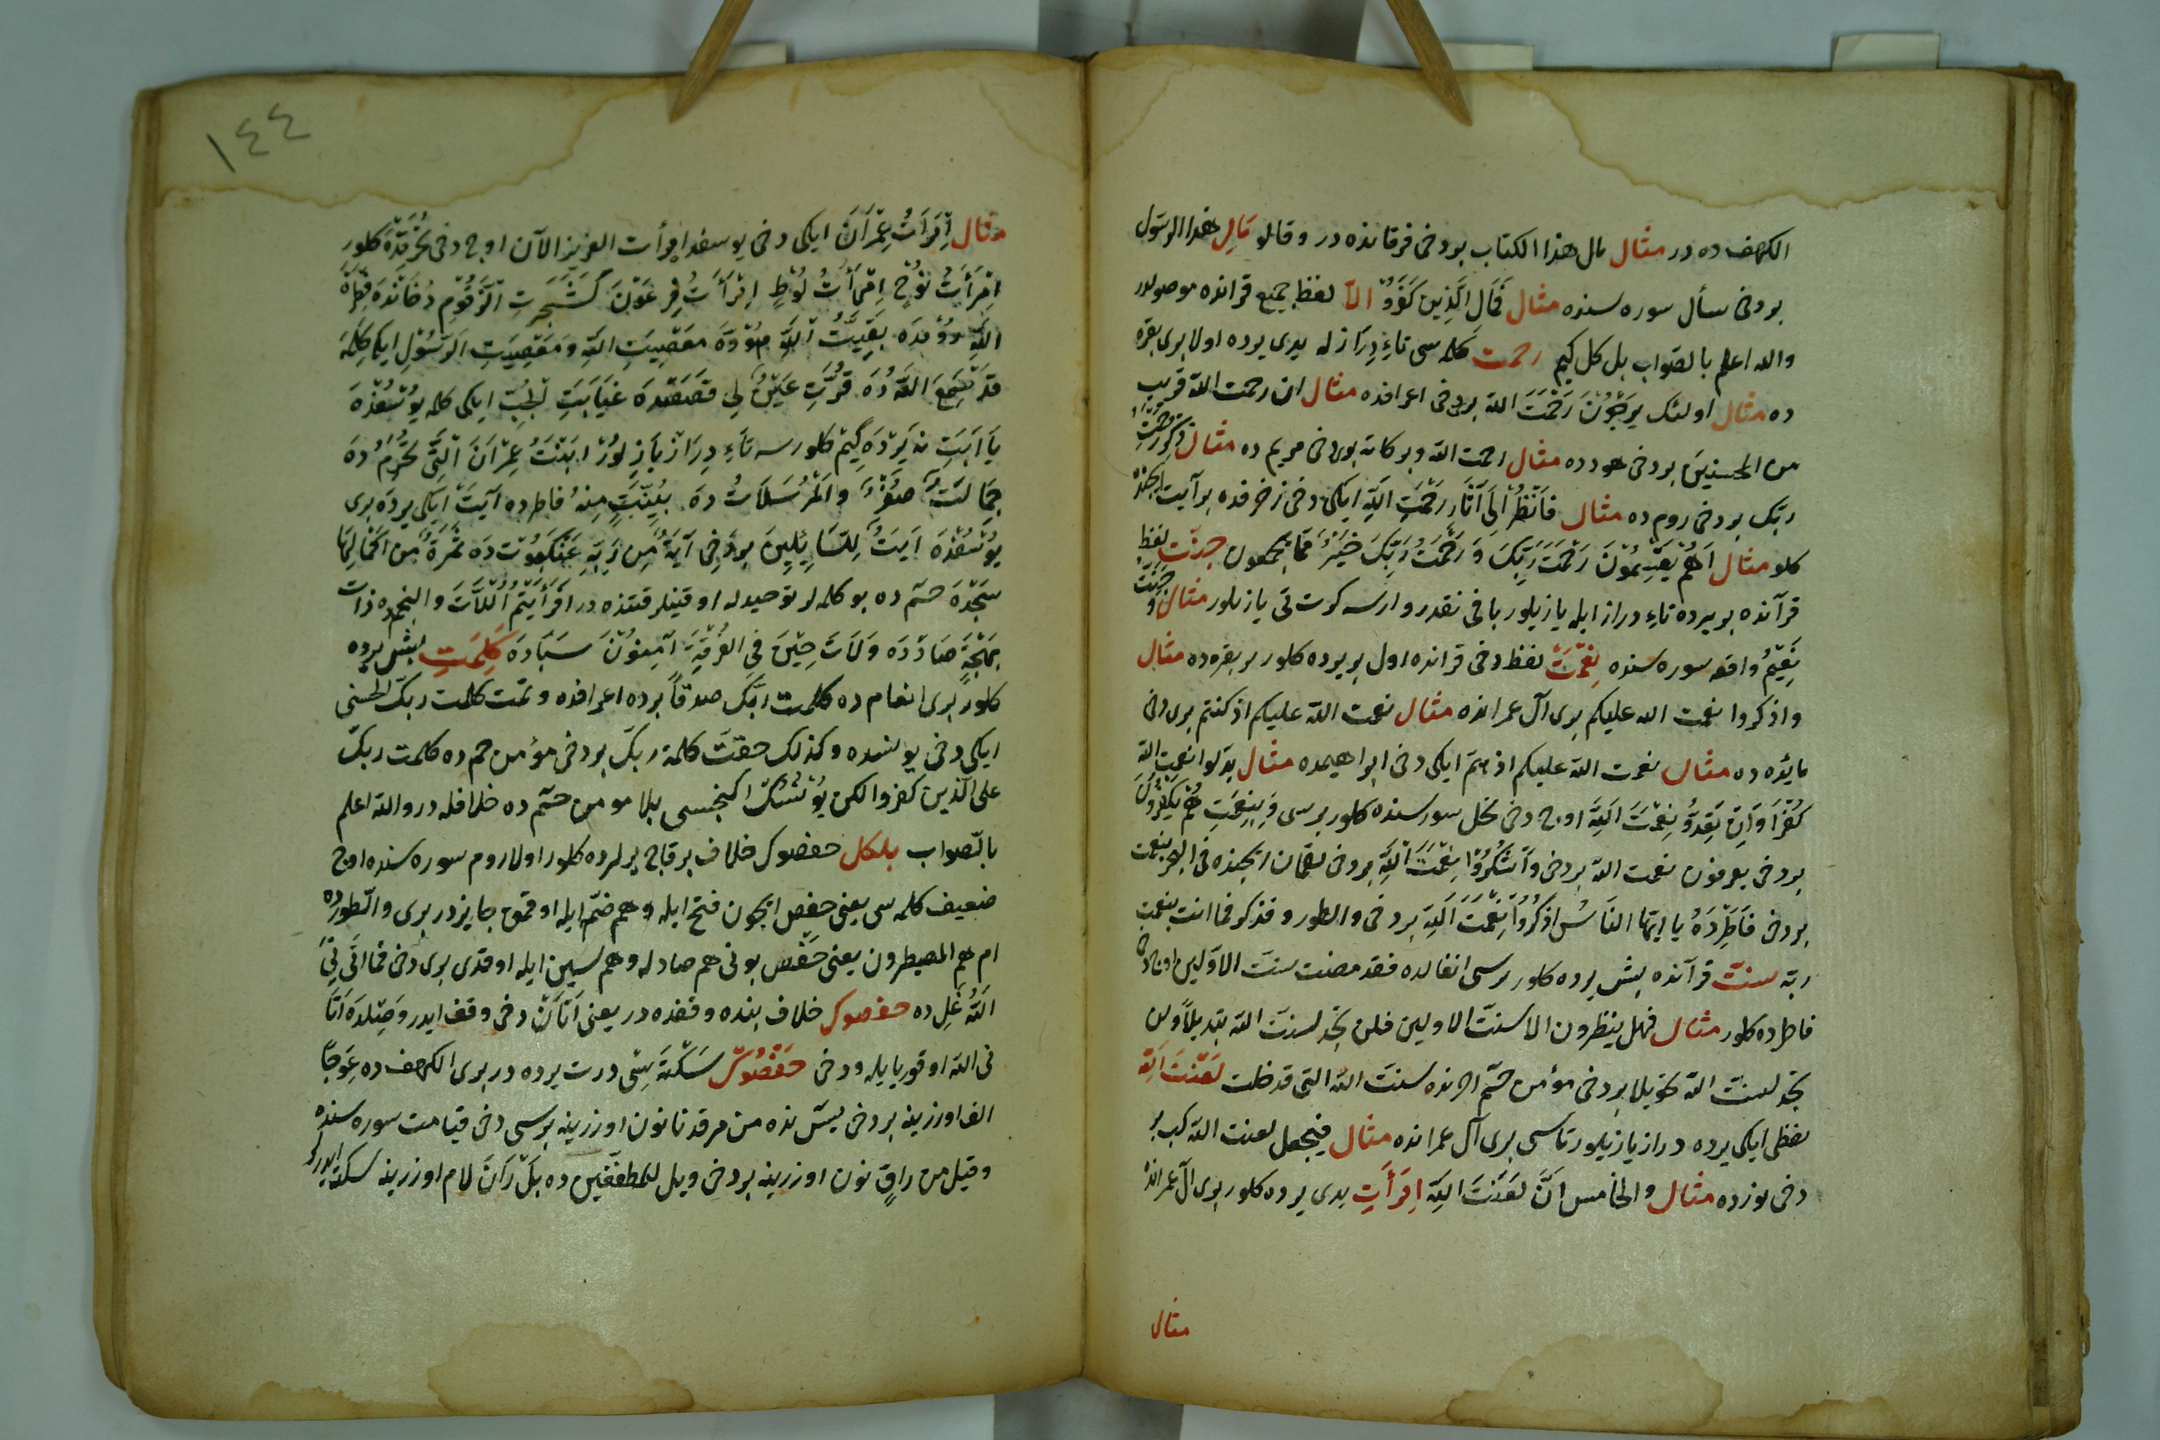 الكهف ده در مثال مال هذا الكتاب بو دخى فرقانده در وقالو مال هذا الرسول
بو دخى سأل سوره سنده مثال فَمَالِ الَّذِينَ كَفَرُوا الّا لفظ جميع قرانده موصولدر
والله اعلم بالصواب بل كل كيم رحمت كلمه سى تاءِ دِرَاز له يدى يرده اولا برى بقره
ده مثال اولئك يَرْجُونَ رَحْمَتَ الله بو دخى اعرافده مثال ان رحمت الله قريب
من المحسنين بو دخى هودده مثال رحمت الله وبركاته بو دخى مريم ده مثال ذِكْرُ رَحْمَتِ
ربك بو دخى روم ده مثال فَانْظُرْ اِلَى آثَارِ رَحْمَتِ اللهِ ايكى دخى زخرفده بو آيت ايچنده
كلو مثال اَهُمْ يَقْسِمُونَ رَحْمَتَ رَبِّكَ وَرَحْمَتُ رَبِّكَ خَيْرٌ مِمَّا يَجْمَعُون جنّت لفظِ
قرآنده بر يرده تاءِ دراز ايله يازيلور باقى نقدر وارسه كوت تى يازيلور مثال وجنت
نَعِيمٍ واقعه سوره سنده نِعْمَتْ لفظ دخى قرانده اول بر يرده كلور بر بقره ده مثال
واذكروا نعمت الله عليكم برى آل عمرانده مثال نعمت الله عليكم اذ كنتم برى دخى
مائده ده مثال نعمت الله عليكم اذ همّ ايكى دخى ابراهيمده مثال بدّلوا نعمت الله
كُفْرًا وَاِنْ تَعُدُّو نِعْمَتَ اللهِ اوچ دخى نحل سورسنده كلور برسى وَبِنِعْمَتِ هُمْ يَكْفُرُونَ
بو دخى يعرفون نعمت الله بو دخى وَاشْكُرُوا نِعْمَتَ اللهِ بو دخى لقمان ايچنده فى البحر بنعمت
بو دخى فَاطِرْدَهْ يا ايها النّاسُ اذْكُرُوا نِعْمَتَ اللهِ بو دخى والطور وفذكر فما انت بنعمت
ربّه سنت قرآنده بش يرده كلور برسى انفالده فقد مضت سنت الاولين اوچ دخى
فاطرده كلور مثال فهل ينظرون الا سنت الاولين فلن تجد لسنت الله تبديلاً ولن
تجد لسنت الله تحويلا بو دخى مؤمن حم آخرنده سنت الله التى قد خلت لَعْنَتَ اللهِ
لفظى ايكى يرده دراز يازيلور تاسى برى آل عمرانده مثال فنجعل لعنت الله بر
دخى نورده مثال والخامس انّ لَعْنَتَ اللهِ اِمْرَأَتِ يدى يرده كلور برى آل عمرانده
مثال
١٤٤
مثال اِمْرَأَتُ عِمْرَانَ ايكى دخى يوسفده امرأت العزيز الآن اوچ دخى تحريمده كلور
امْرَأَتَ نُوحٍ امْرَأَتَ لُوطٍ امْرَأَتَ فِرْعَوْنَ شَجَرَتِ الزَّقُّومِ دُخَانْدَه فِطْرَةَ
اللهِ رُومْدَه بَقِيَّتُ اللهِ هُودْدَه مَعْصِيَتِ اللهِ وَمَعْصِيَتِ الرَّسُولِ ايكى كلمه
قَدْ سَمِعَ اللهُ دَه قُرَّتُ عَيْنٍ لِي قَصَصْدَه غَيَابَتِ الْجُبِّ ايكى كله يُوسُفْدَه
يَا اَبَتِ نه يَرْدَه كِيم كلورسه تاءِ دِرَازْ يَازِلُورْ ابْنَتَ عِمْرَانَ الَّتِى تَحْرِيمْ دَه
جِمَالَتٌ صُفْرٌ وَالْمُرْسَلَاتْ دَه بَيِّنَتٍ مِنْهُ فاطرده آيَتْ ايكى يرده برى
يُوسُفْدَه آيَتٌ لِلسَّائِلِينَ بو دخى آيَةٌ مِنْ رَبِّهِ عَنْكَبُوتْ دَه ثَمَرَةٍ مِنْ اَكْمَامِهَا
سَجْدَه حم ده بو كلمه لر توحيدله اوقينلر قتنده در اَفَرَأَيْتُمُ اللَّاتَ والنجمده ذات
بَهْجَةٍ صَادْدَه وَلَاتَ حِينَ فِي الْغُرُفَةِ آمِنُونَ سَبَادَه كَلِمَتِ بش يرده
كلور برى انعام ده كلمت ربّك صدقاً برده اعرافده وتمت كلمت ربك الحسنى
ايكى دخى يونسده وكذلك حقّت كلمة ربك بو دخى مؤمن حم ده كلمت ربك
على الّذين كفروا لكن يُونُسْكْ ايكنجسى بلا مومن حم ده خلافله در والله اعلم
بالصّواب بلكل حفصوك خلاف بر قاچ يرلرده كلور اولا روم سوره سنده اوچ
ضعيف كلمه سى يعنى حفص ايچون فتح ايله وهم ضمّ ايله اوقمق جايزدر برى والطورده
ام هم المصيطرون يعنى حَفْص بونى هم صادله وهم سين ايله اوقدى برى دخى فَمَا آتَانِيَ
اللهُ نَمْلِ ده حفصوك خلاف بنده وقفده در يعنى آتَانْ دخى وقف ايدر وَصْلْدَه آتَا
نى الله اوقور يا ايله ودخى حَفْصُوكْ سَكْتَه سِى درت يرده در برى الكهف ده عِوَجًا
الف اوزرينه بو دخى يس نده من مرقدنا نون اوزرينه برسى دخى قيامت سوره سنده
وقيل من راقٍ نون اوزرينه بو دخى ويل للمطففين ده بَلْ رَانَ لام اوزرينه سكته ايدر